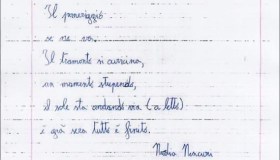 Il pomeriggio
se ne va.
Il tramonto si avvicina,
un momento stupendo,
il sole sta andando via (a letto)
è già sera tutto è finito.
Nadia